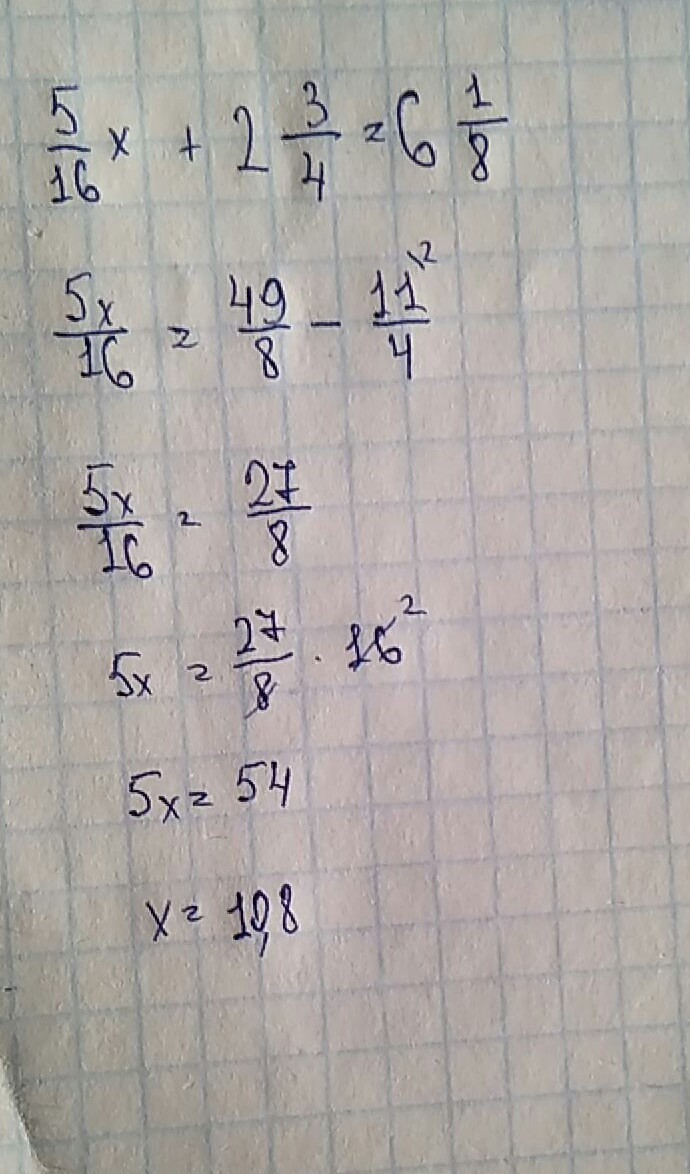 5/16 x + 2 3/4 = 6 1/8
5x/16 = 49/8 - 11\2/4
5x/16 = 27/8
5x = 27/8 · 16²
5x = 54
x = 10,8